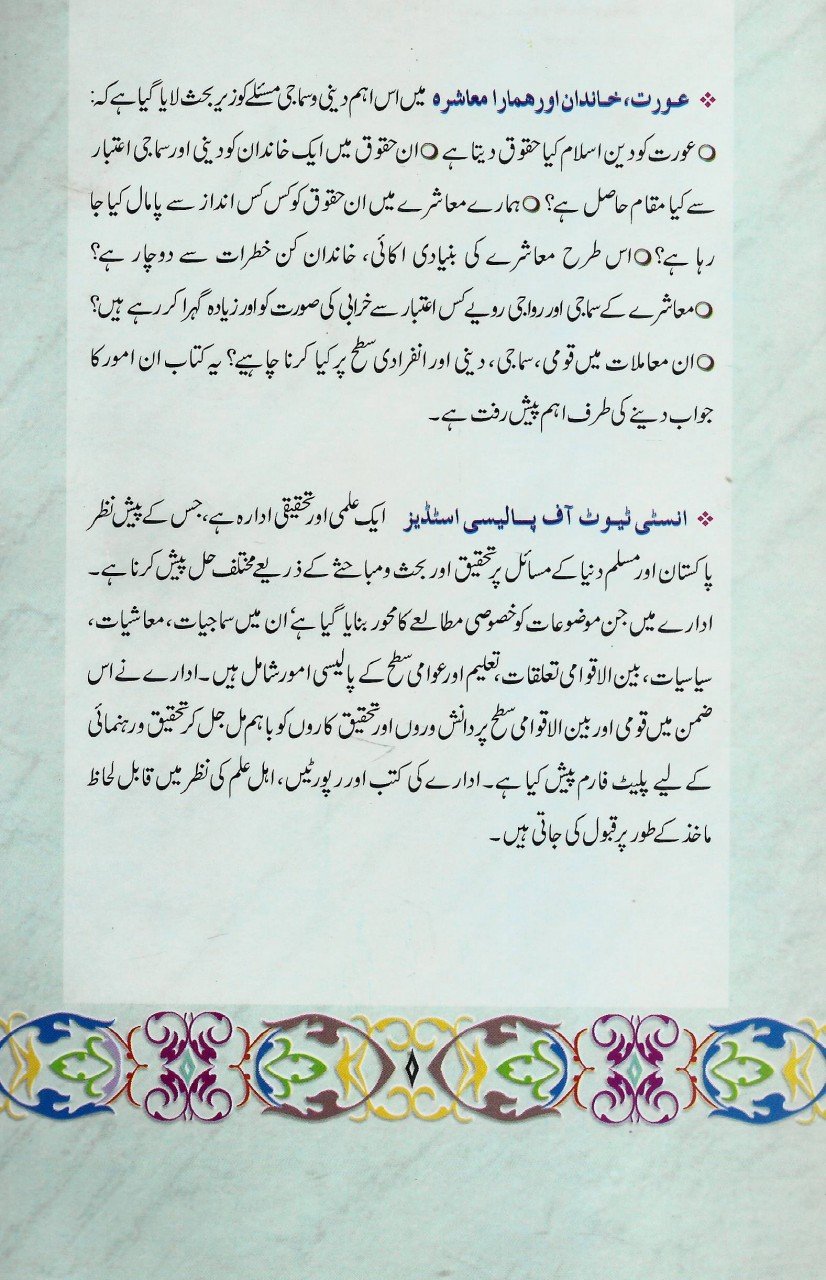 ❖ عورت، خاندان اور ھمارا معاشرہ میں اس اہم دینی و سماجی مسئلے کو زیر بحث لایا گیا ہے کہ:
○عورت کو دین اسلام کیا حقوق دیتا ہے ○ان حقوق میں ایک خاندان کو دینی اور سماجی اعتبار
سے کیا مقام حاصل ہے؟ ○ہمارے معاشرے میں ان حقوق کو کس کس انداز سے پامال کیا جا
رہا ہے؟○اس طرح معاشرے کی بنیادی اکائی، خاندان کن خطرات سے دوچار ہے؟
○معاشرے کے سماجی اور رواجی رویے کس اعتبار سے خرابی کی صورت کو اور زیادہ گہرا کر رہے ہیں؟
○ان معاملات میں قومی، سماجی، دینی اور انفرادی سطح پر کیا کرنا چاہیے؟ یہ کتاب ان امور کا
جواب دینے کی طرف اہم پیش رفت ہے۔
❖ انسٹی ٹیوٹ آف پالیسی اسٹڈیز ایک علمی اور تحقیقی ادارہ ہے، جس کے پیش نظر
پاکستان اور مسلم دنیا کے مسائل پر تحقیق اور بحث و مباحثے کے ذریعے مختلف حل پیش کرنا ہے۔
ادارے میں جن موضوعات کو خصوصی مطالعے کا محور بنایا گیا ہے‘ ان میں سماجیات، معاشیات،
سیاسیات، بین الاقوامی تعلقات، تعلیم اور عوامی سطح کے پالیسی امور شامل ہیں۔ ادارے نے اس
ضمن میں قومی اور بین الاقوامی سطح پر دانش وروں اور تحقیق کاروں کو باہم مل جل کر تحقیق و رہنمائی
کے لیے پلیٹ فارم پیش کیا ہے۔ ادارے کی کتب اور رپورٹیں، اہل علم کی نظر میں قابل لحاظ
ماخذ کے طور پر قبول کی جاتی ہیں۔